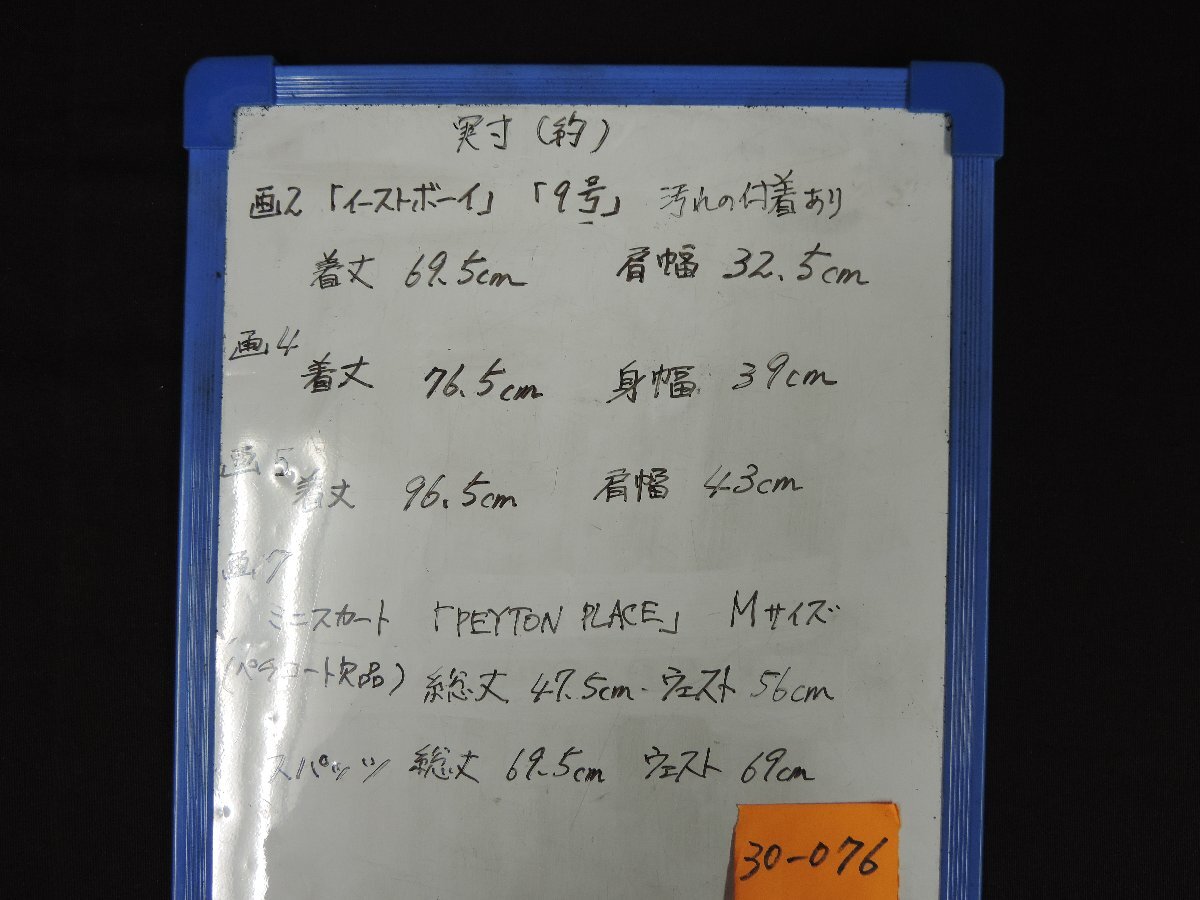 実寸(約)
画2 「イーストボーイ」 「9号」 汚れの付着あり
着丈 69.5cm 肩幅 32.5cm
画4
着丈 76.5cm 身幅 39cm
画5
着丈 96.5cm 肩幅 43cm
画7
ミニスカート 「PEYTON PLACE」 Mサイズ
欠品) 総丈 47.5cm・ウェスト 56cm
スパッツ 総丈 69.5cm ウェスト 69cm
30-076